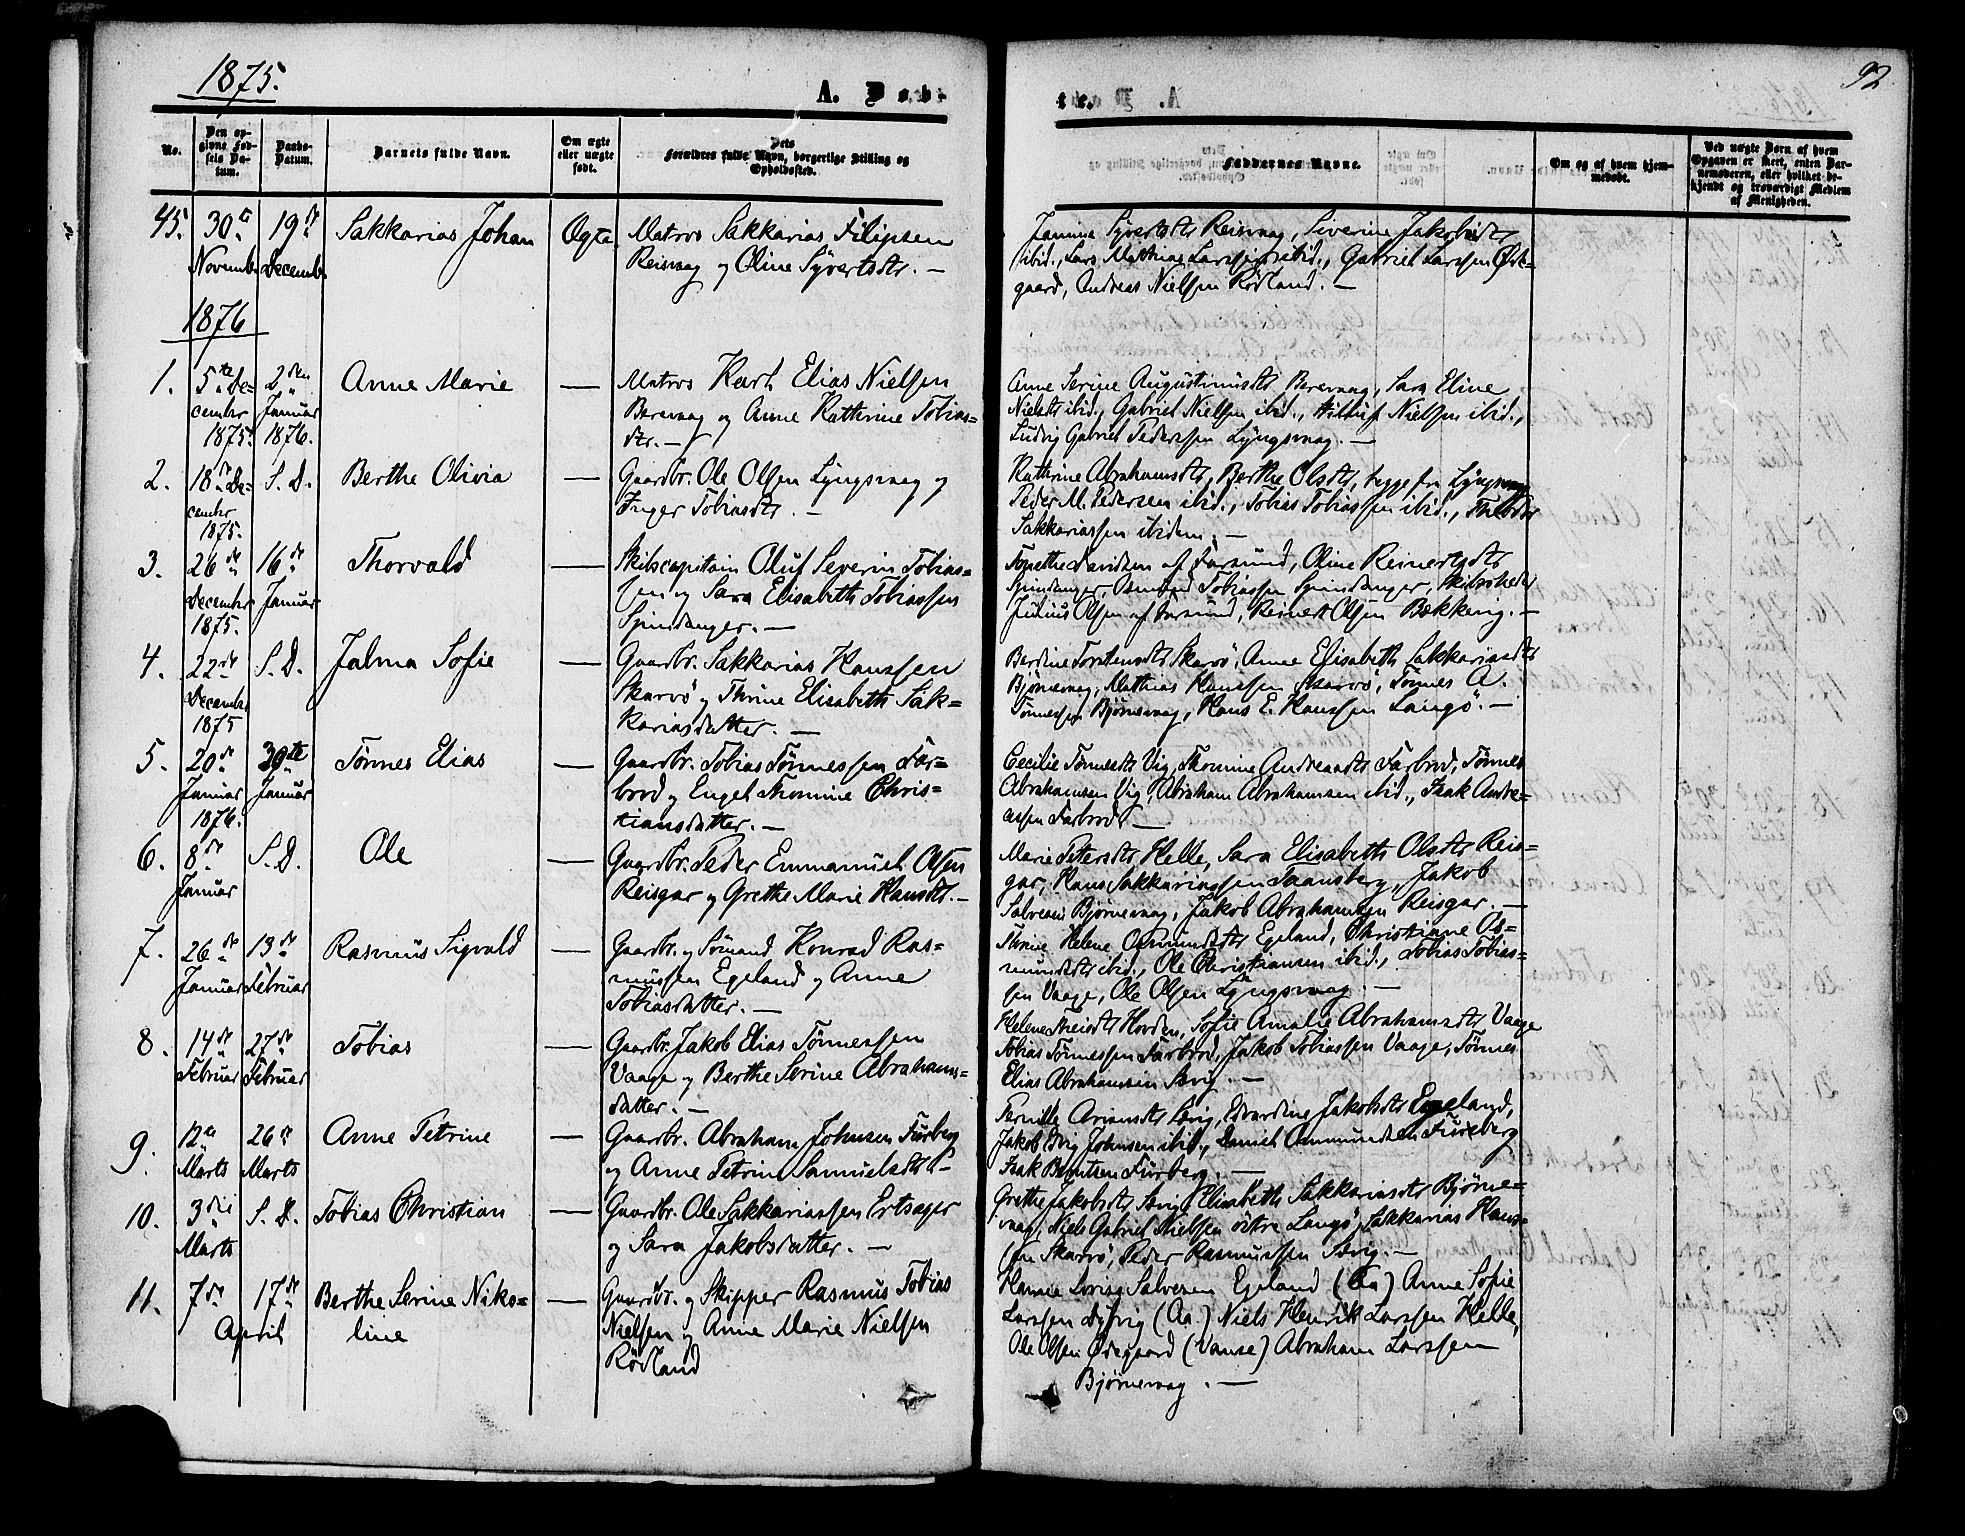 1875.
A. Dab-
No.
Den op-
givne Fød-
sels Da-
tum.
Daabs-
Datum.
Barnets fulde Navn.
Om ægte
eller uægte
født.
Dets
Forældres fulde Navn, borgerlige Stilling og
Opholdssted.
45. 30te 19de Sakkarias Johan Ægte Matros Sakkarias Filipsen
Novembr Decembr Reisvaag og Oline Syvertsdtr. —
1876
1. 5te De- 2den Anne Marie — Matros Karl Elias Nielsen
cembr Januar Berevaag og Anne Kathrine Tobias-
1875. 1876. dtr. —
2. 18de De- S. D. Berthe Olivia — Gaardbr. Ole Olsen Lyngsvaag og
cembr Inger Tobiasdtr. —
1875.
3. 26de 16de Thorvald — Skibscapitain Oluf Severin Tobias-
Decembr Januar sen og Sara Elisabeth Tobiassen
1875. Spindanger. —
4. 22de S. D. Jalma Sofie — Gaardbr. Sakkarias Hanssen
Decembr Skarvø og Thrine Elisabeth Sak-
1875 kariasdatter. —
5. 20de 30te Tønnes Elias — Gaardbr. Tobias Tønnessen Far-
Januar Januar brod og Engel Thomine Chris-
1876. tiansdatter. —
6. 8de S. D. Ole — Gaardbr. Peder Emmanuel Olsen
Januar Reisgar og Grethe Marie Hansdtr. —
7. 26de 13de Rasmus Sigvald — Gaardbr. og Sømand Konrad Ras-
Januar Februar mussen Egeland og Anne
Tobiasdatter. —
8. 14de 27de Tobias — Gaardbr. Jakob Elias Tønnessen
Februar Februar Vaage og Berthe Serine Abrahams-
datter. —
9. 12te 26de Anne Petrine — Gaardbr. Abraham Johnsen Furberg
Marts Marts og Anne Petrine Samuelsdtr. —
10. 3die S. D. Tobias Christian — Gaardbr. Ole Sakkariassen Ertsager
Marts og Sara Jakobsdatter. —
11. 7de 17de Berthe Serine Niko- — Gaardbr. og Skipper Rasmus Tobias
April line Nielsen og Anne Marie Nielsen
Rødland
92
te.
Faddernes Navne.
Om og af hvem hjem-
medøbt.
Ved uægte Børn af hvem
Opgaven er skeet, enten Bar-
nemoderen, eller hvilket be-
kjendt og troværdigt Medlem
af Menigheden.
Janine Syvertsdtr Reisvaag, Siverine Jakobsdtr
ibid., Lars Mathias Larssen ibid., Gabriel Larssen Øde-
gaard, Andreas Nielsen Rødland. —
Anne Serine Augustinusdtr Berevaag, Sara Eline
Nielsdtr ibid., Gabriel Nielsen ibid., Nielsen ibid.,
Ludvig Gabriel Pederssen Lyngsvaag. —
Kathrine Abrahamsdtr, Berthe Olsdtr, begge fra Lyngsvaag
Peder M. Pedersen ibid., Tobias Tobiassen ibid., Theodor
Sakkariassen ibidem. —
Tønethe Davidsen af Farsund, Oline Reinertsdtr
Spindanger, Osmund Tobiassen Spindanger, Skibsreder
Julius Olsen af Farsund, Reinert Olsen Bækkeng. —
Berdine Torstensdtr Skarvø, Anne Elisabeth Sakkariasdtr
Bjørnevaag, Mathias Hanssen Skarvø, Tønnes A.
Tønnessen Bjørnevaag, Hans E. Hanssen Langø. —
Cecilie Tønnesdtr Vig, Thomine Andreasdtr Farbrod, Tønnes
Abrahamsen Vig, Abraham Abrahamsen ibid., Isak Andre-
assen Farbrod. —
Marie Petersdtr Helle, Sara Elisabeth Olsdtr Reis-
gar, Hans Sakkariassen Jakob
Salvesen Bjørnevaag, Jakob Abrahamsen Reisgar. —
Thrine Helene Osmundsdtr Egeland, Christiane Os-
mundsdtr ibid., Ole Christiansen ibid., Tobias Tobias-
sen Vaage, Ole Olsen Lyngsvaag. —
Helene Hovden, Sofie Amalie Abrahamsdtr Vaage
Tobias Tønnessen Farbrod, Jakob Tobiassen Vaage, Tønnes
Elias Abrahamsen —
Pernille Edvardine Jakobsdtr Egeland,
Jakob Johnsen ibid., Daniel Ommundsen Fureberg
Isak Berntsen Furberg. —
Grethe Jakobsdtr Elisabeth Sakkariasdtr Bjørne-
vaag, Niels Gabriel Nielsen østre Langø, Sakkarias Hans-
sen Skarvø, Peder Rasmussen —
Hanne Lovise Salvesen Egeland (Aa) Anne Sofie
Larssen (Aa.) Niels Henrik Larssen Helle,
Ole Olsen Ødegaard (Vanse) Abraham Larssen
Bjørnevaag. —